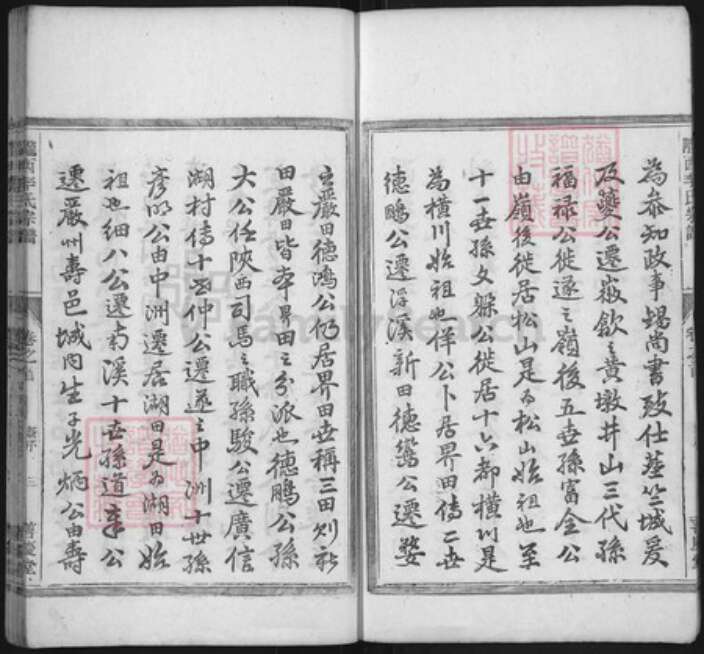 為叅知政事場尚書致仕塟竺城爰
及䕫公遷嶶歙之黄墩井山三代孫
福禄公徙遂之嶺後五世孫富全公
由嶺後徙居松山是為松山始祖也至
十一世孫文躲公徙居十六都横川是
為横川始祖也佯公卜居界田傳二世
德鵬公遷浮溪新田德鸞公遷婺
之嚴田德鴻公仍居界田世稱三田刘祁
田嚴田皆夲界田之分派也德鵬公孫
大公任陜西司馬之職孫駿公遷廣信
湖村傳十世仲公遷遂之中洲十世孫
彦明公由中洲遷居湖田是为湖田始
祖也细八公遷南溪十世孫道 公
遷嚴州壽邑城内生子光炳公由壽
隴西李氏宗譜
卷之首
善慶堂
FamilySearch